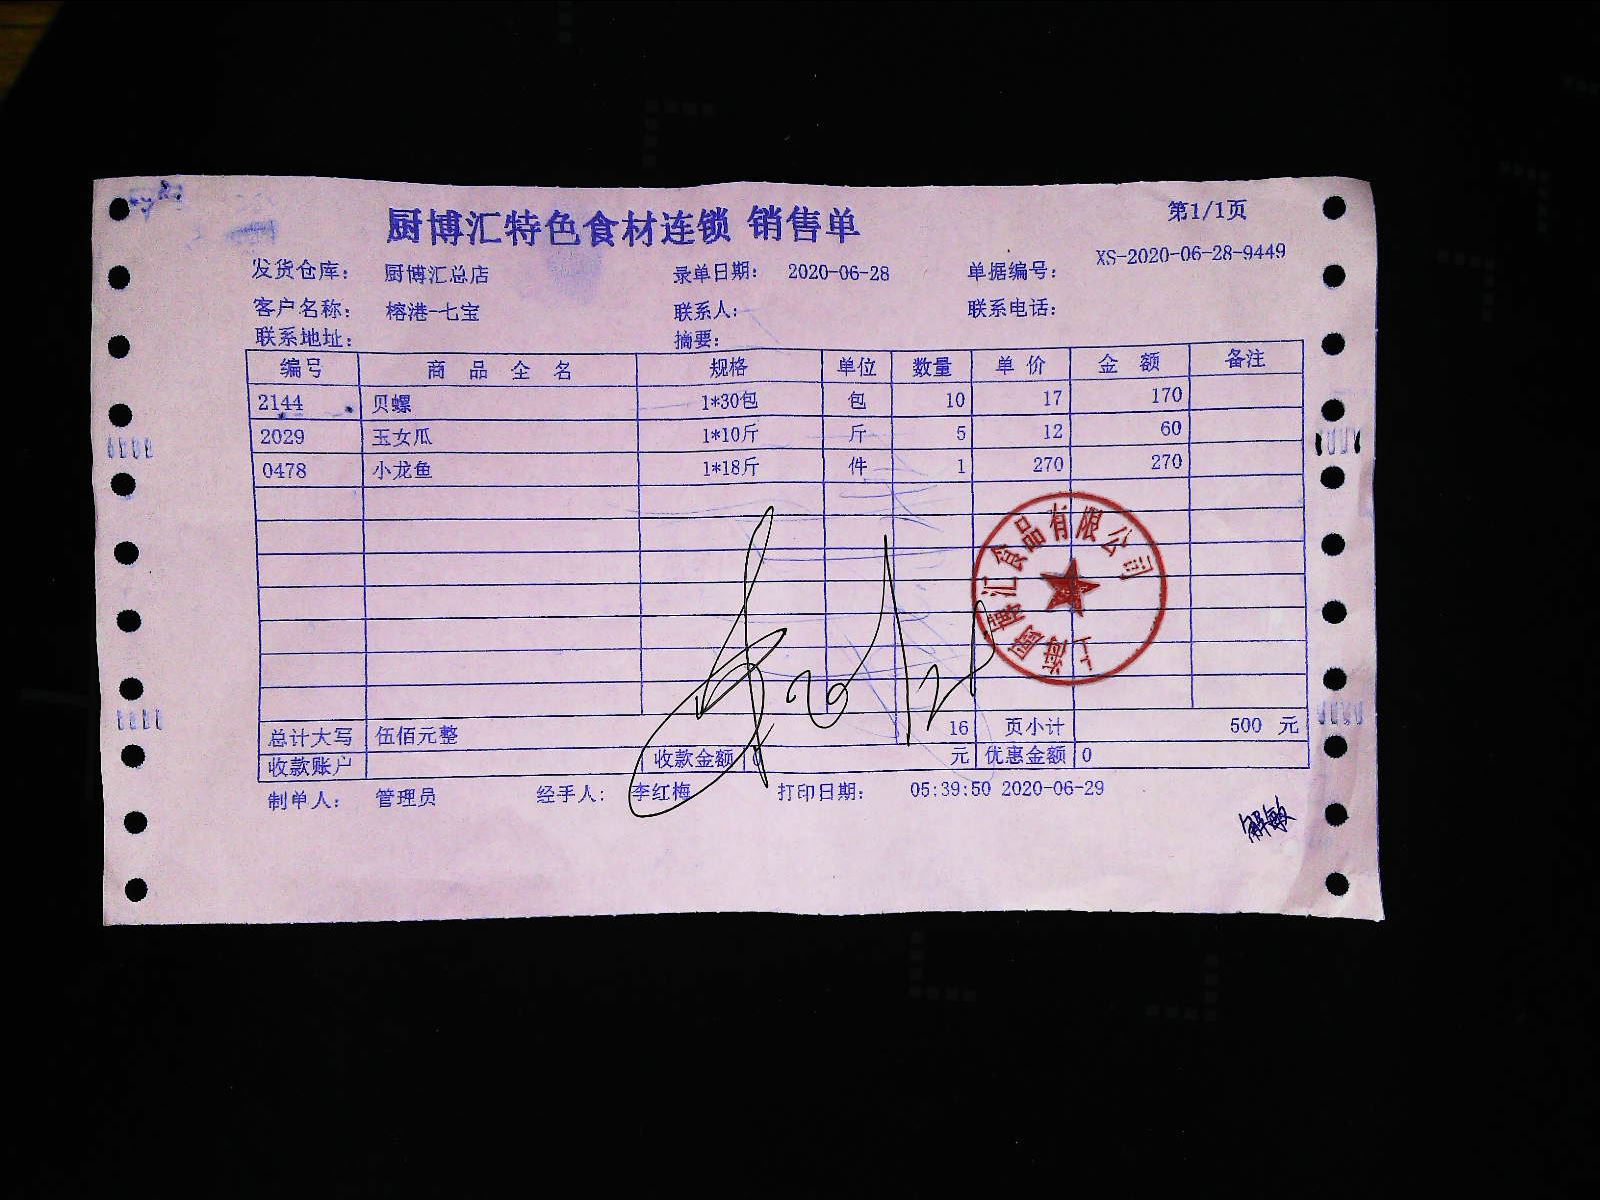 厨博汇特色食材连锁 销售单 第1/1页
发货仓库： 厨博汇总店 录单日期： 2020-06-28 单据编号： XS-2020-06-28-9449
客户名称： 榕港-七宝 联系人： 联系电话：
联系地址： 摘要：
编号 商品全名 规格 单位 数量 单价 金额 备注
2144 贝螺 1*30包 包 10 17 170
2029 玉女瓜 1*10斤 斤 5 12 60
0478 小龙鱼 1*18斤 件 1 270 270
上海厨博汇食品有限公司
总计大写 伍佰元整 16 页小计 500 元
收款账户 收款金额 0 元 优惠金额 0
制单人： 管理员 经手人： 李红梅 打印日期： 05:39:50 2020-06-29